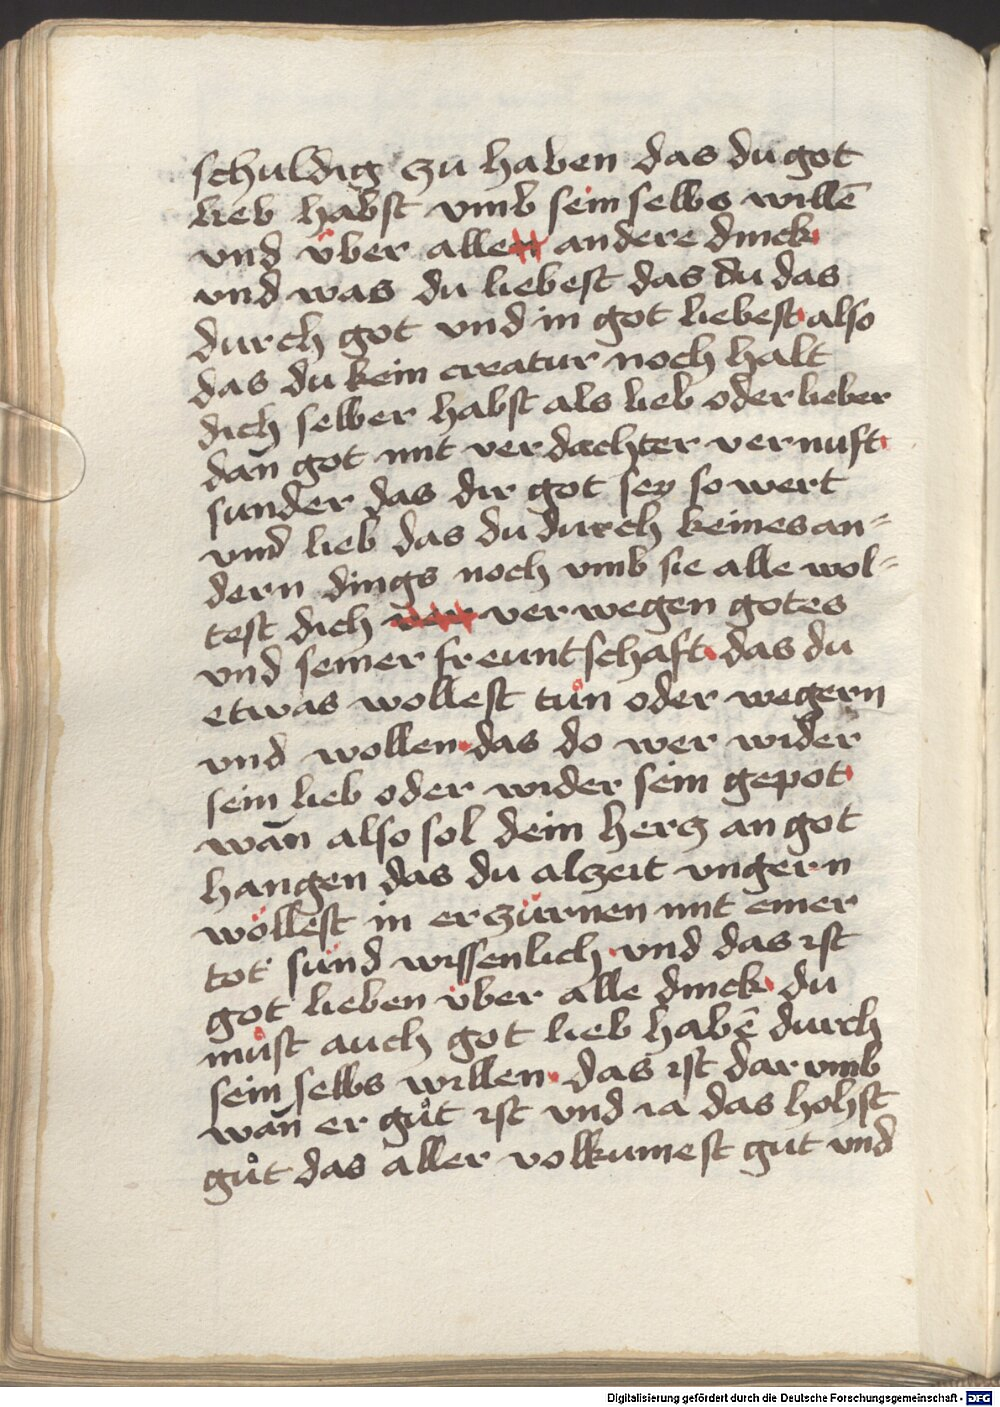 schuldig zu haben das du got
lieb habst vmb sein selbs willē
vnd über allen andere dinck
vnd was du liebest das du das
durch got vnd in got liebest also
das du kein creatur noch halt
dich selber habst als lieb oder lieber
dan̄ got mit verdachter vernuft
sunder das dir got sey so wert
vnd lieb das du durch keines an-
dern dings noch vmb sie alle wol-
test dich ver verwegen gotes
vnd seiner freuntschaft das du
etwas wollest tůn oder wegern
vnd wollen das do wer wider
sein lieb oder wider sein gepot
wan̄ also sol dein herz an got
hangen das du alzeit vngern
wöllest in erzürnen mit einer
tot sünd wissenlich vnd das ist
got lieben über alle dinck du
můst auch got lieb habē durch
sein selbs willen das ist darvmb
wan̄ er gůt ist vnd ia das hohst
gůt das aller volkumest gut vnd
Digitalisierung gefördert durch die Deutsche Forschungsgemeinschaft - DFG